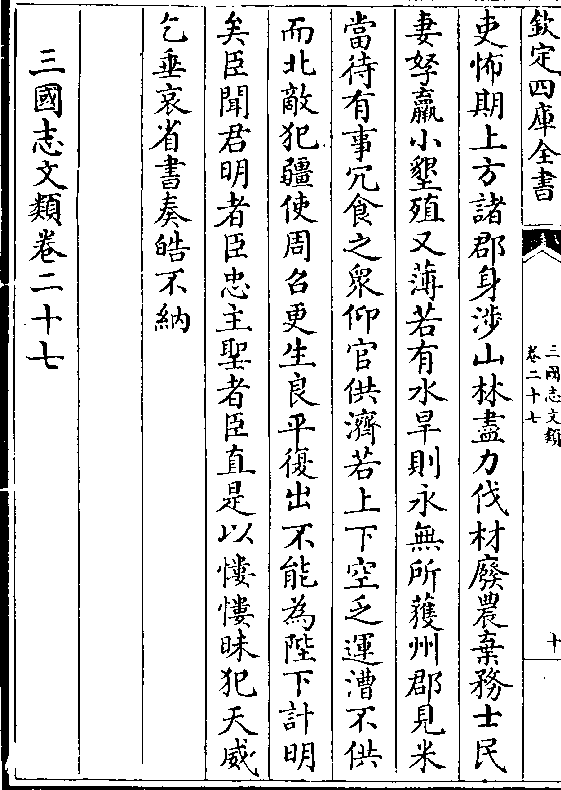 欽定四庫全書
三國志文類
卷二十七
十
吏怖期上方諸郡身涉山林盡力伐材廢農棄務士民
妻孥羸小墾殖又薄若有水旱則永無所獲州郡見米
當待有事冗食之衆仰官供濟若上下空乏運漕不供
而北敵犯疆使周召更生良平復出不能為陛下計明
矣臣聞君明者臣忠主聖者臣直是以慺慺昧犯天威
乞垂哀省書奏皓不納
三國志文類卷二十七